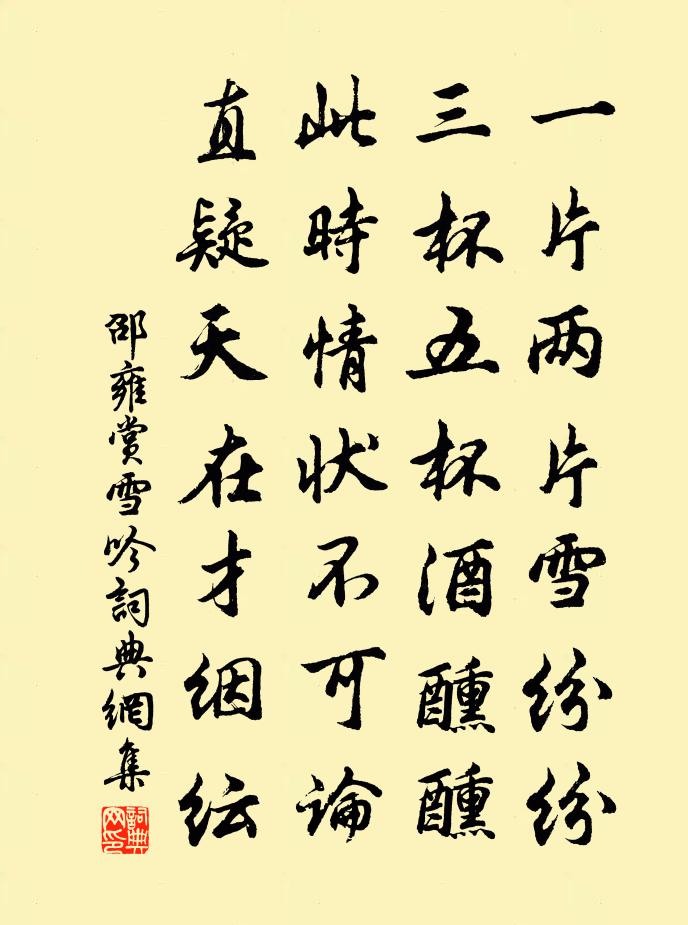 一片两片雪纷纷
三杯五杯酒醺醺
此時情状不可論
直疑天在才絪纭
邵雍賞雪吟詞典網集
詞典
网印